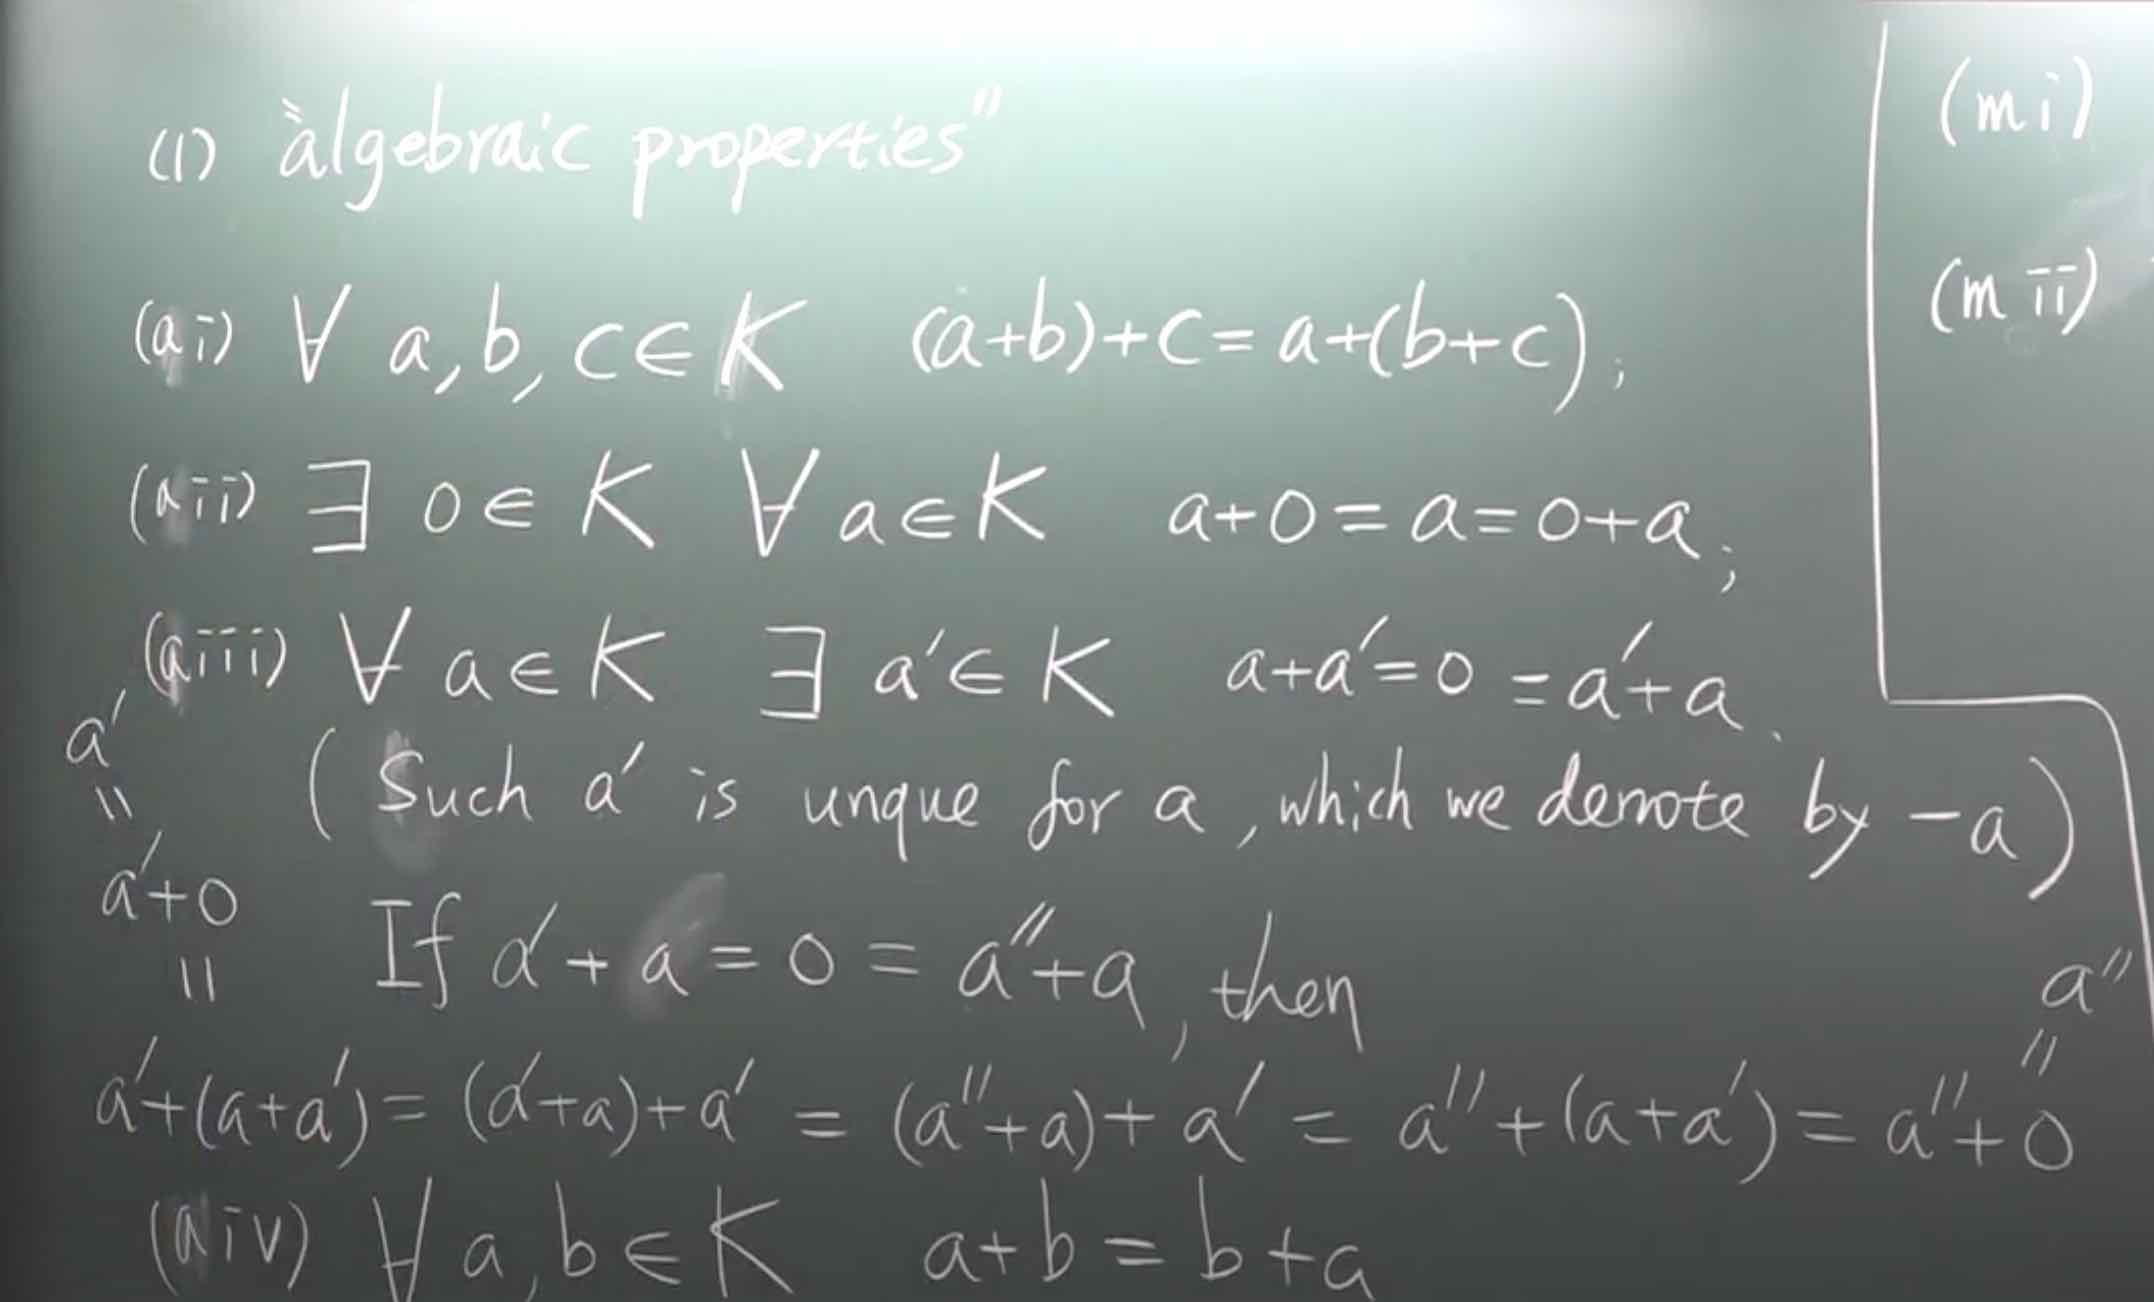 (1) "algebraic properties"
(ai) ∀ a, b, c ∈ K (a+b)+c = a+(b+c) ;
(aii) ∃ 0 ∈ K ∀ a ∈ K a+0 = a = 0+a ;
(aiii) ∀ a ∈ K ∃ a′ ∈ K a+a′ = 0 = a′+a .
(Such a′ is unque for a, which we denote by -a)
a′
=
a′+0
=
If a′+a = 0 = a″+a, then
a″
=
a′+(a+a′) = (a′+a)+a′ = (a″+a)+a′ = a″+(a+a′) = a″+0
(aiv) ∀ a, b ∈ K a+b = b+a
(mi)
(mii)